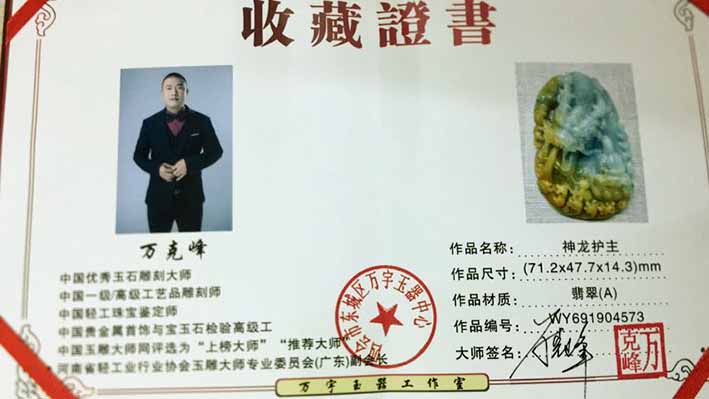 收藏證書
万克峰
中国优秀玉石雕刻大师
中国一级/高级工艺品雕刻师
中国轻工珠宝鉴定师
中国贵金属首饰与宝玉石检验高级工
中国玉雕大师网评选为“上榜大师”“推荐大师”
河南省轻工业行业协会玉雕大师专业委员会(广东)副会长
作品名称: 神龙护主
作品尺寸: (71.2x47.7x14.3)mm
作品材质: 翡翠(A)
作品编号: WY691904573
大师签名:
万克峰
会市东城区万宇玉器中心
万宇玉器工作室